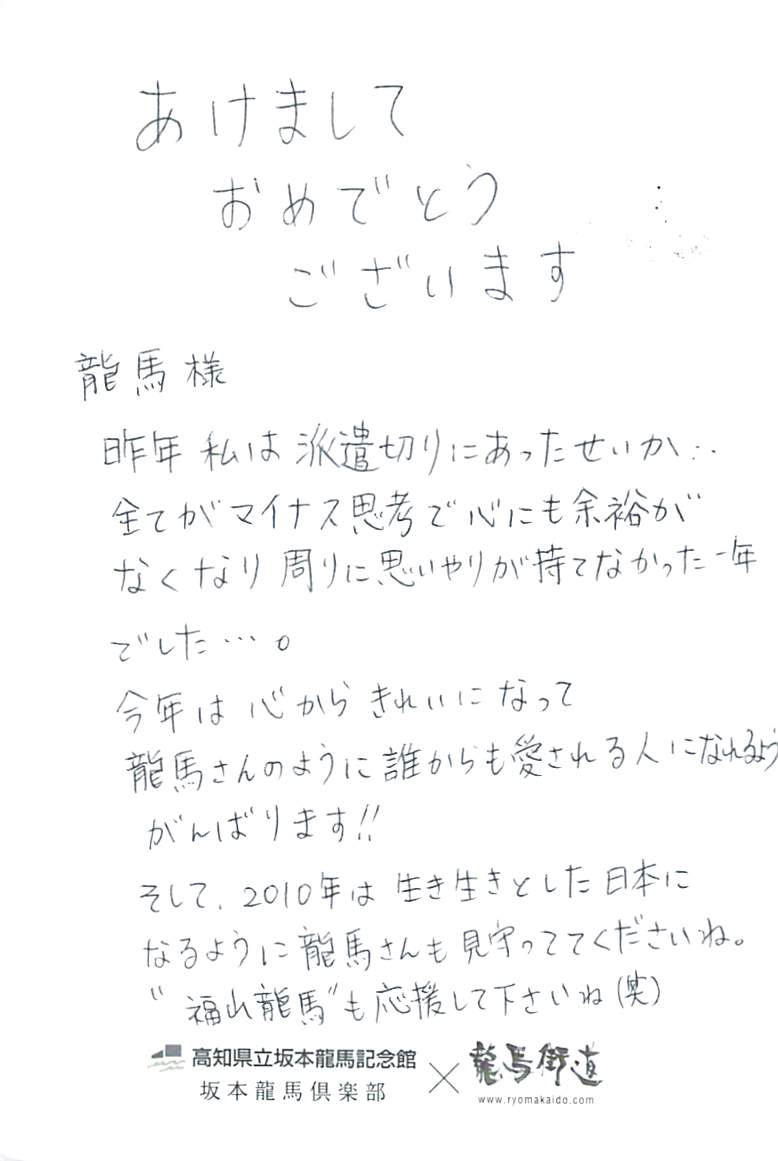 あけまして
おめでとう
ございます
龍馬様
昨年 私は 派遣切りにあったせいか‥
全てがマイナス思考で心にも余裕が
なくなり 周りに思いやりが持てなかった一年
でした…。
今年は 心から きれいに なって
龍馬さんのように誰からも愛される人になれるよう
がんばります!!
そして、2010年は 生き生きとした日本に
なるように龍馬さんも見守っててくださいね。
"福山龍馬"も応援して下さいね(笑)
高知県立坂本龍馬記念館
坂本龍馬倶楽部
×
龍馬街道
www.ryomakaido.com